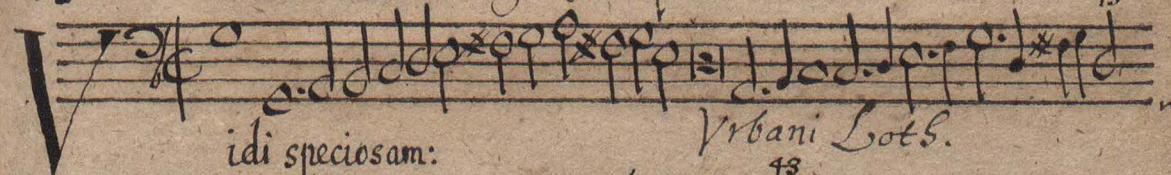 Vidi speciosam: Vrbani Loth.
43